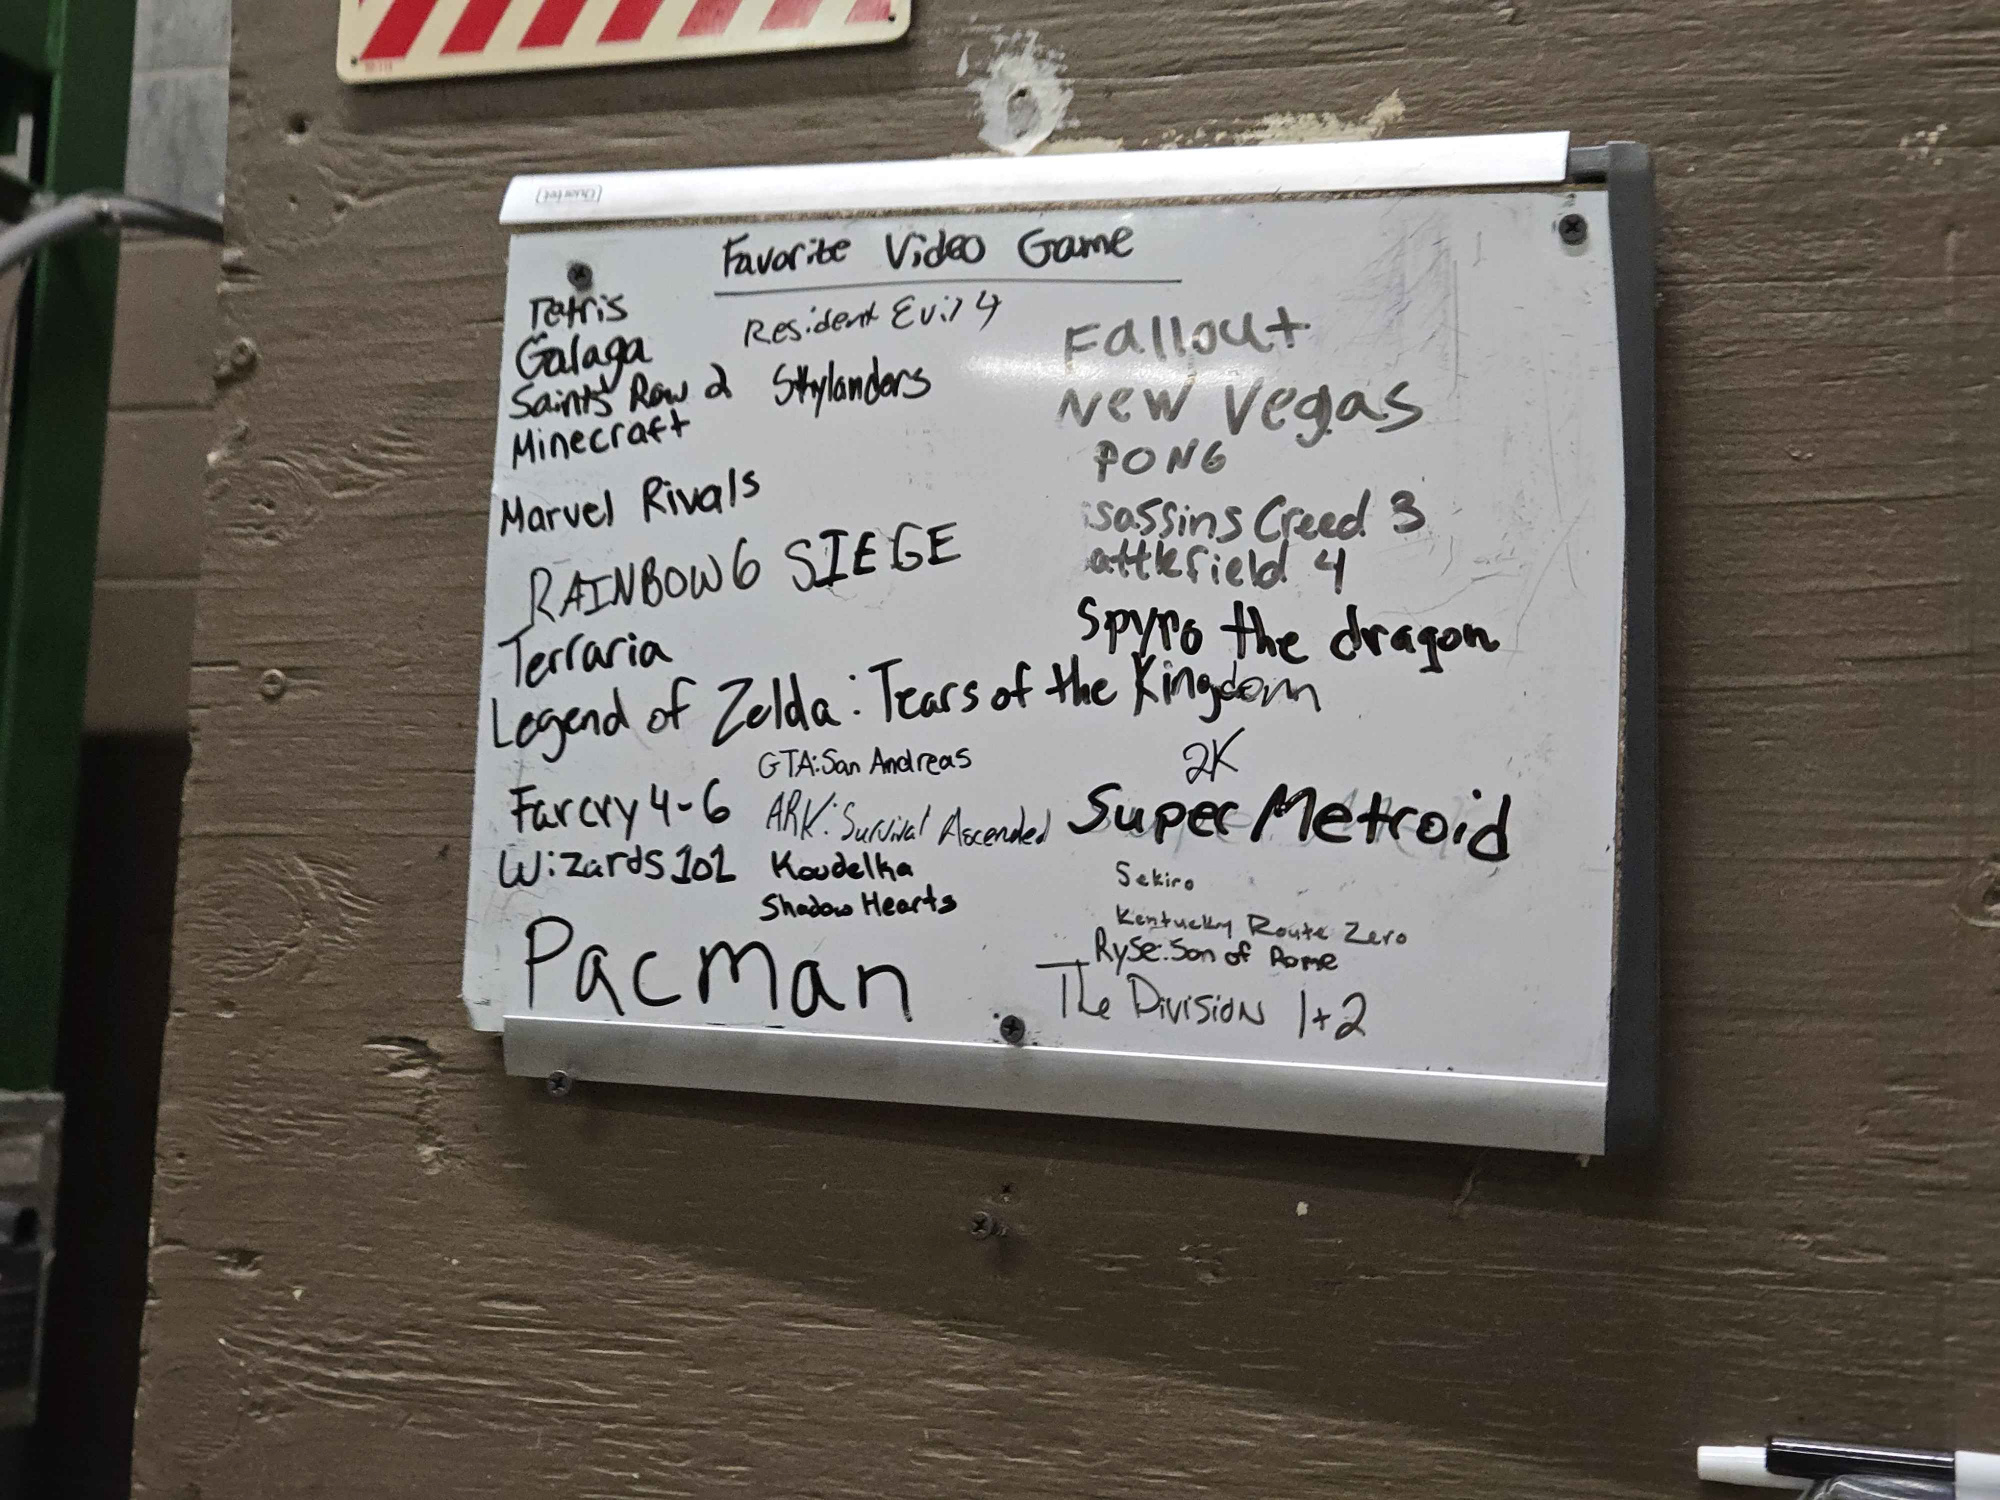 Quartet
Favorite Video Game
Tetris
Galaga
Saints Row 2
Minecraft
Marvel Rivals
RAINBOW 6 SIEGE
Terraria
Legend of Zelda: Tears of the Kingdom
Farcry 4-6
Wizards 101
Pacman
Resident Evil 4
Skylanders
GTA: San Andreas
ARK: Survival Ascended
Koudelka
Shadow Hearts
Fallout
New Vegas
PONG
sassins Creed 3
attlefield 4
Spyro the dragon
2K
Super Metroid
Sekiro
Kentucky Route Zero
Ryse: Son of Rome
The Division 1+2